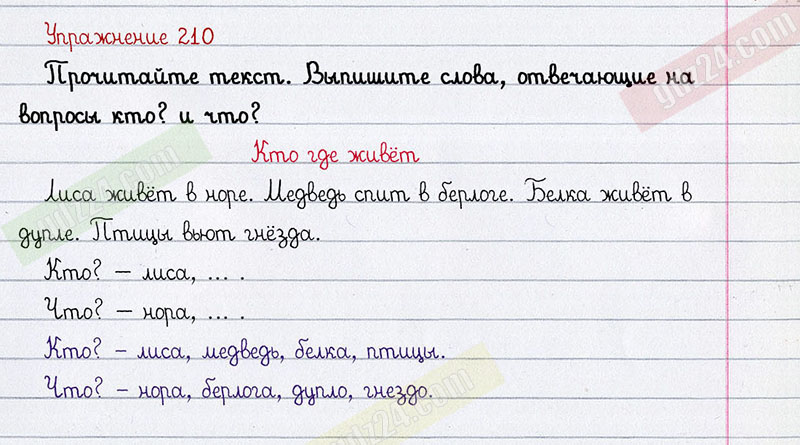 Упражнение 210
Прочитайте текст. Выпишите слова, отвечающие на
вопросы кто? и что?
Кто где живёт
Лиса живёт в норе. Медведь спит в берлоге. Белка живёт в
дупле. Птицы вьют гнёзда.
Кто? – лиса, ... .
Что? – нора, ... .
Кто? – лиса, медведь, белка, птицы.
Что? – нора, берлога, дупло, гнездо.
gdz24.com
gdz24.com
gdz24.com